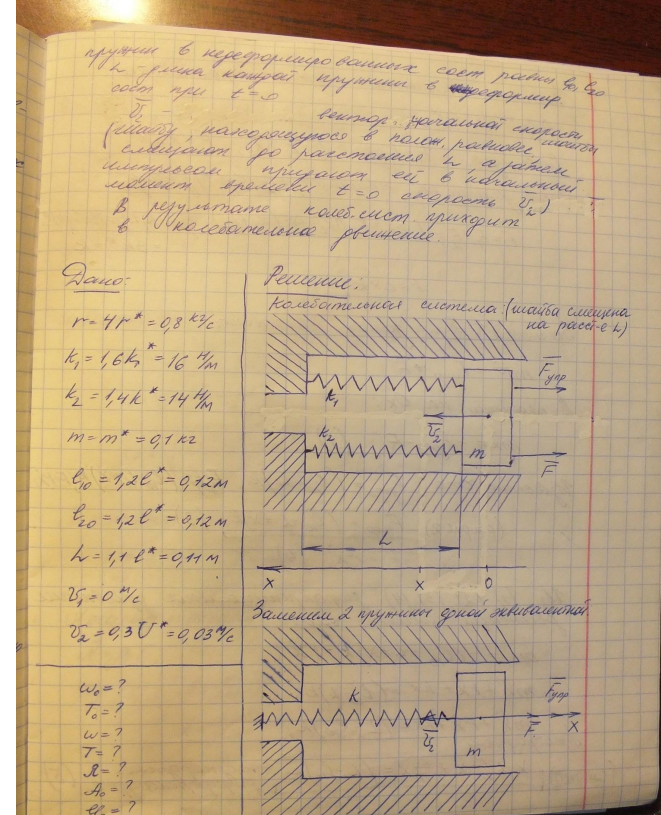 пружин в недеформированных сост равны l₁₀, l₂₀
L - длина каждой пружины в деформир
сост при t=0
v̅₂ вектор начальной скорости
(шайбу, находящуюся в полож. равновес
смещают до расстояния L, а затем
импульсом придают ей в начальный
момент времени t=0 скорость v̅₂)
В результате колеб. сист. приходит
в колебательное движение.
Дано:
r = 4r* = 0,8 кг/с
k₁ = 1,6k* = 16 Н/м
k₂ = 1,4k* = 14 Н/м
m = m* = 0,1 кг
l₁₀ = 1,2l* = 0,12м
l₂₀ = 1,2l* = 0,12м
L = 1,1l* = 0,11м
v₁ = 0 м/с
v₂ = 0,3v* = 0,03 м/с
ω₀ = ?
T₀ = ?
ω = ?
T = ?
λ = ?
A₀ = ?
Решение:
Колебательная система: (шайба смещена
на расст-е L)
F̅упр
k₁
v̅₂
k₂
m
F̅
L
x
x
0
Заменим 2 пружины одной эквивалентной
k
F̅упр
v̅₂
m
F̅
x